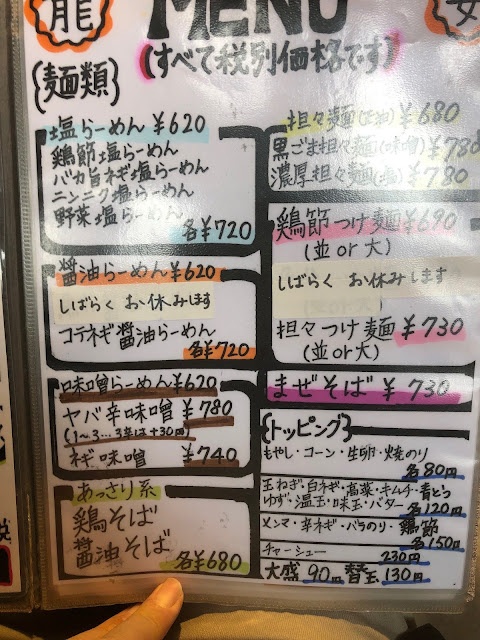 龍
MENU
(すべて税別価格です)
{麺類}
塩らーめん ¥620
鶏節塩らーめん
バカ旨ネギ塩らーめん
ニンニク塩らーめん
野菜塩らーめん
各¥720
醤油らーめん ¥620
しばらく お休みします
コテネギ醤油らーめん
各¥720
味噌らーめん ¥620
ヤバ辛味噌 ¥780
(1〜3…3辛は+30円)
ネギ味噌 ¥740
あっさり系
鶏そば
醤油そば
各¥680
担々麺 ¥680
黒ごま担々麺(味噌) ¥780
濃厚担々麺(塩) ¥780
鶏節つけ麺 ¥690
(並or大)
しばらく お休みします
担々つけ麺 ¥730
(並or大)
まぜそば ¥730
{トッピング}
もやし・コーン・生卵・焼のり
各80円
玉ねぎ・白ネギ・高菜・キムチ・青とう
ゆず・温玉・味玉・バター
各120円
メンマ・辛ネギ・バラのり・鶏節
各150円
チャーシュー 230円
大盛 90円 替玉 130円